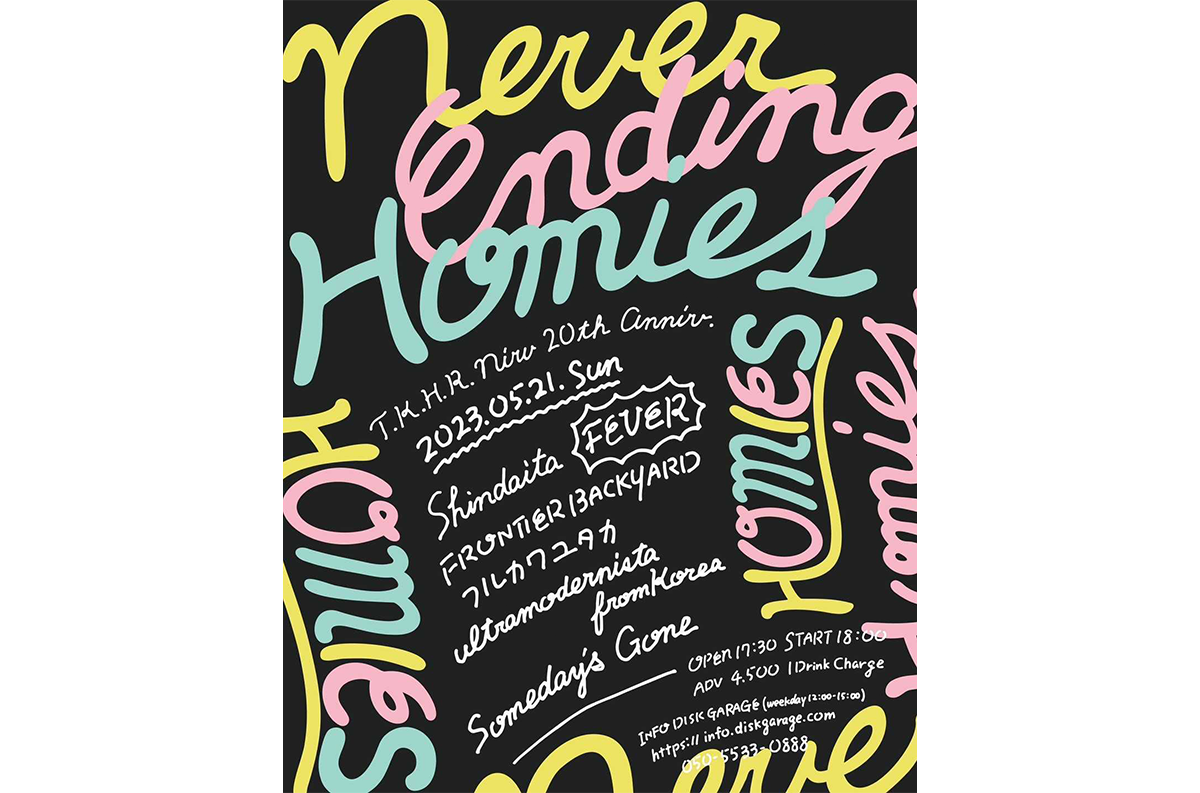 Never
Ending
Homies
T.K.H.R. Niru 20th Anniv.
2023.05.21. Sun
Shindaita FEVER
FRONTIER BACKYARD
フルカワユタカ
ultramodernista
from Korea
Someday's Gone
OPEN 17:30 START 18:00
ADV 4.500 1 Drink Charge
INFO DISK GARAGE (weekday 12:00-15:00)
https://info.diskgarage.com
050-5533-0888
HOMIES
HOMIES
Homies
Neve